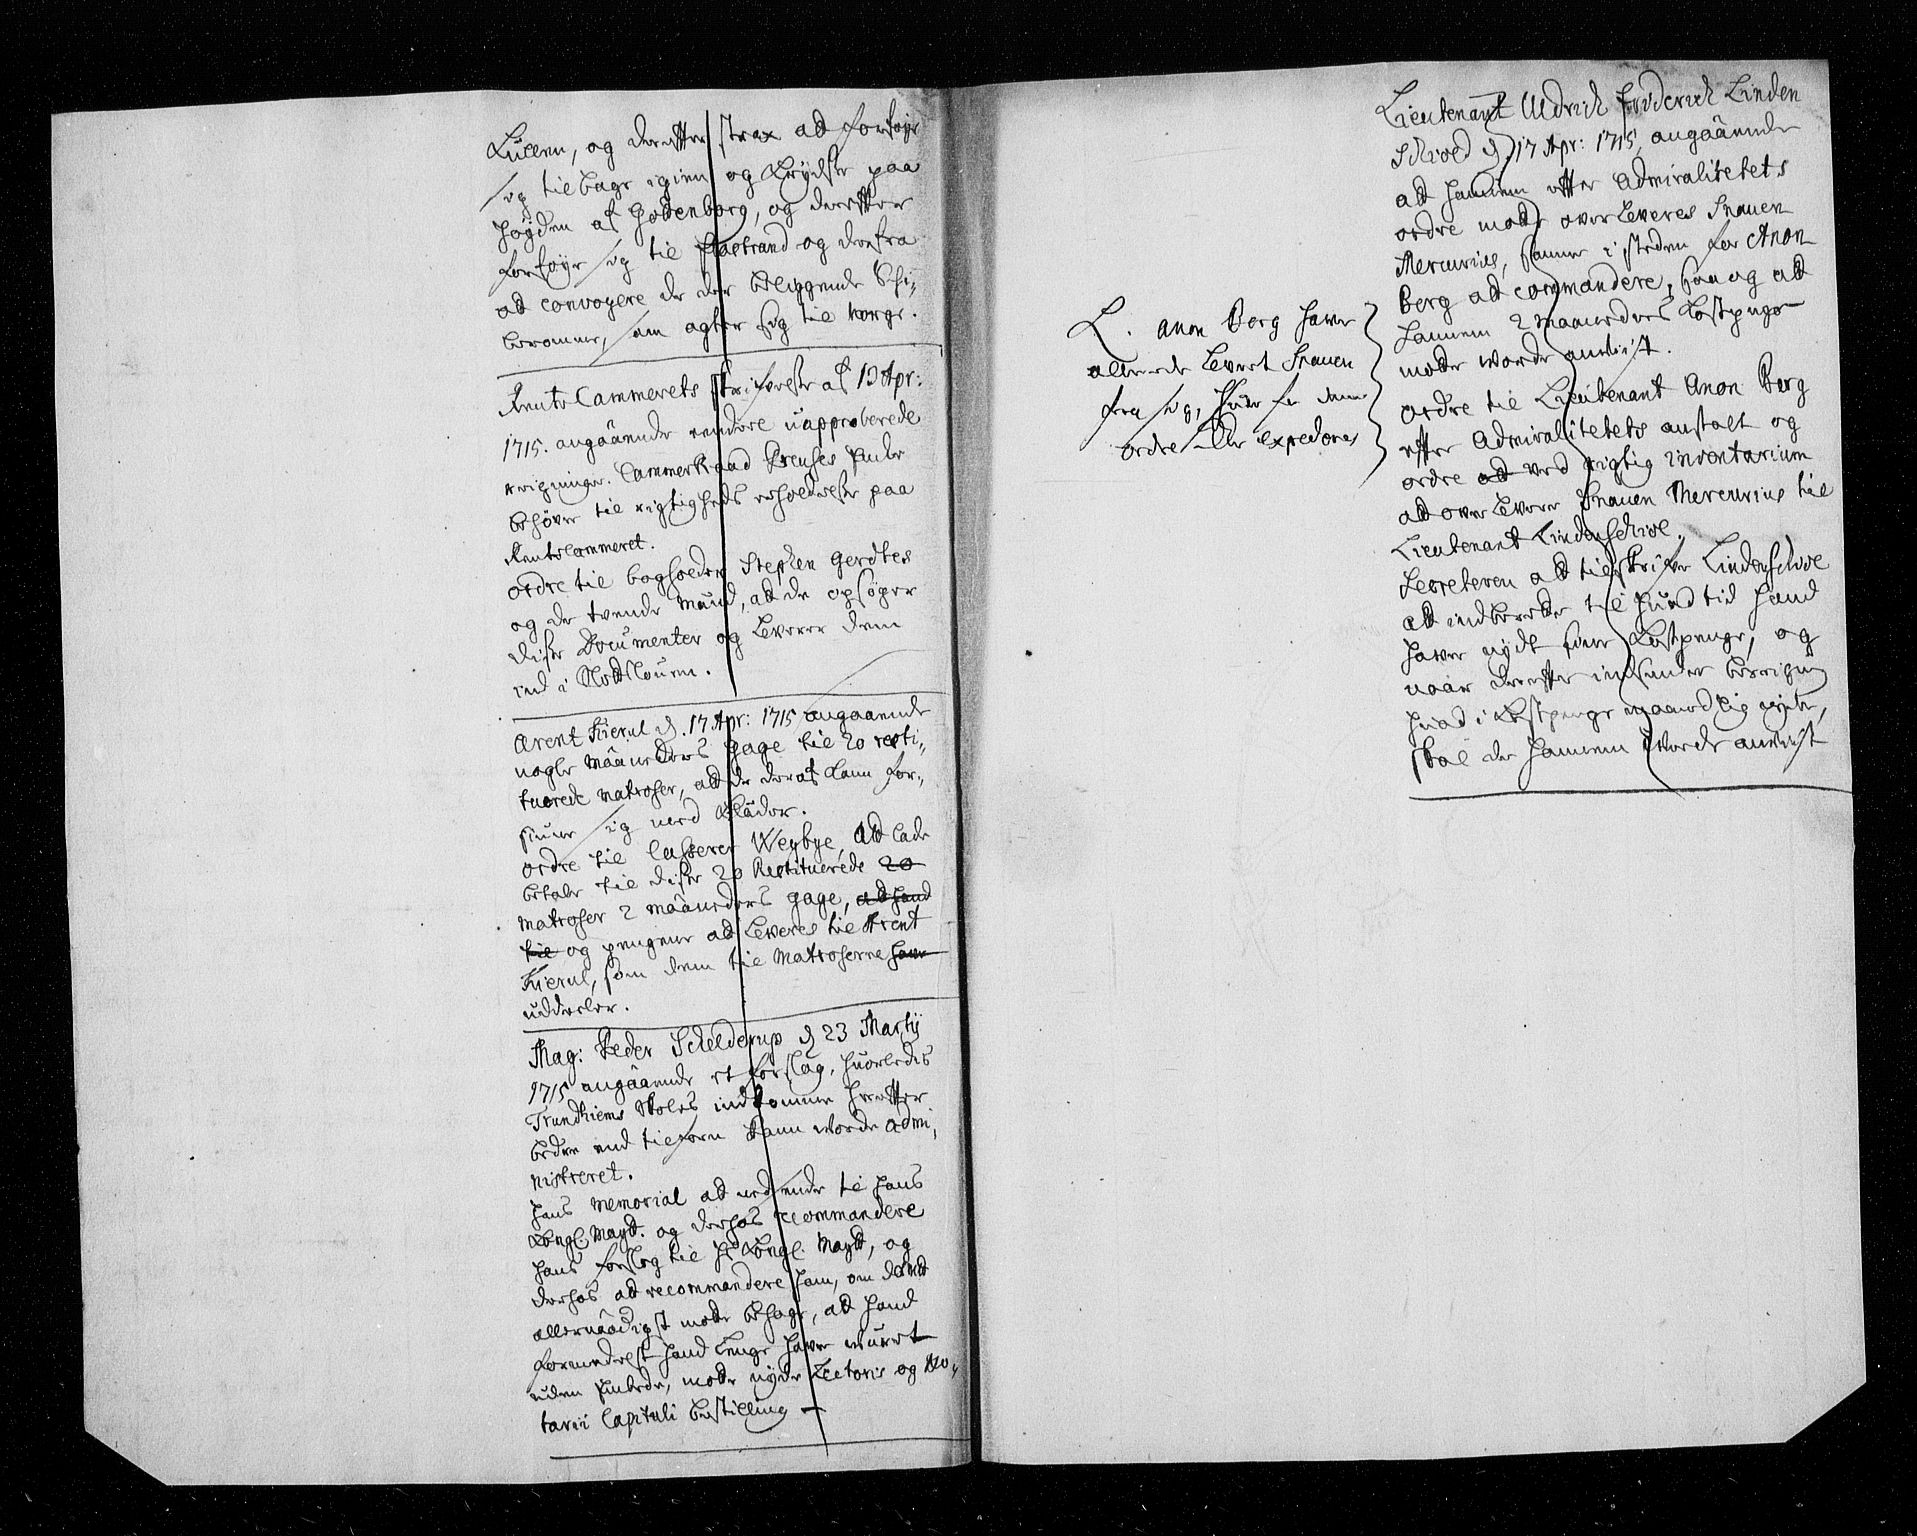 Lucern, og derefter strax ad forføye
sig tilbage igien og Krydse paa
høyden af Gottenborg, og derefter
forføye sig til flastrand og derfra
ad convoyere de der beliggende Schi,,
beromme, som agter sig til Norge.
Rente Cammerets skrifvelse af 13 Apr:
1715. angaaende endere uapproberede
reigninger. Cammerraad Preuses Encke
behöver til rigtigheds erholdelse paa
Rentecammeret.
ordre til bogholder Stephen Gerdtes
og de tvende Mænd, at de opsöger
disse Documenter og Leverer dem
ind i Slotsloven.
Arent Kierul d. 17 Apr: 1715 angaaende
nogle Maaneders gage til 20 resti,,
tuerede Matroser, ad de deraf kann for,,
siune sig med Klæder.
ordre til Casserer Weybye, ad lade
betale til disse 20 Restituerede 20
Matroser 2 Maaneders gage, ad hand
til og pengene ad Leveres til Arent
Kierul, som dem til Matroserne haver
uddeeler.
Mag: Peder Schelderup d 23 Martij
1715 angaaende et forslag, huorledis
Trundhiems Skoles indkomme herefter
bedre end tilforn kann worde admi,,
nistreret.
hans Memorial ad nedsende til hans
Kongl. Mayt. og derhos recommandere
hans forslag til hs Kongl. Mayt, og
derhos at recommandere ham, om det
allernaadigst motte behage, at hand
formedelst hand Lenge haver wæret
uden Embede, motte nyde Lectoris og No,,
tarii Capituli bestilling
L. Anon Berg haver
allerede Levert Snauen
fra sig, huor for denne
ordre ej blr expederes
Lieutenant Uldrich friderich Linden
Schiold d 17 Apr: 1715, angaaende
ad hannem efter Admiralitetets
ordre motte overleveres Snauen
Mercurius, samme i steden for Anon
Berg ad commandere, saa og ad
hannem 2 maaneders Kostpenge
motte worde anvist.
ordre til Lieutenant Anon Berg
efter Admiralitetets anstalt og
ordre ad ved rigtig inventarium
ad overlevere Snauen Mercurius til
Lieutenant Lindenschiol.
Secreteren ad tilskrifve Lindenschiol
at indberette til huad tid hand
haver nydt sine Kostpenge, og
naar derefter indsender beregning
huad i Kostpenge maanedlig nyder,
skal de hannem worde anvist